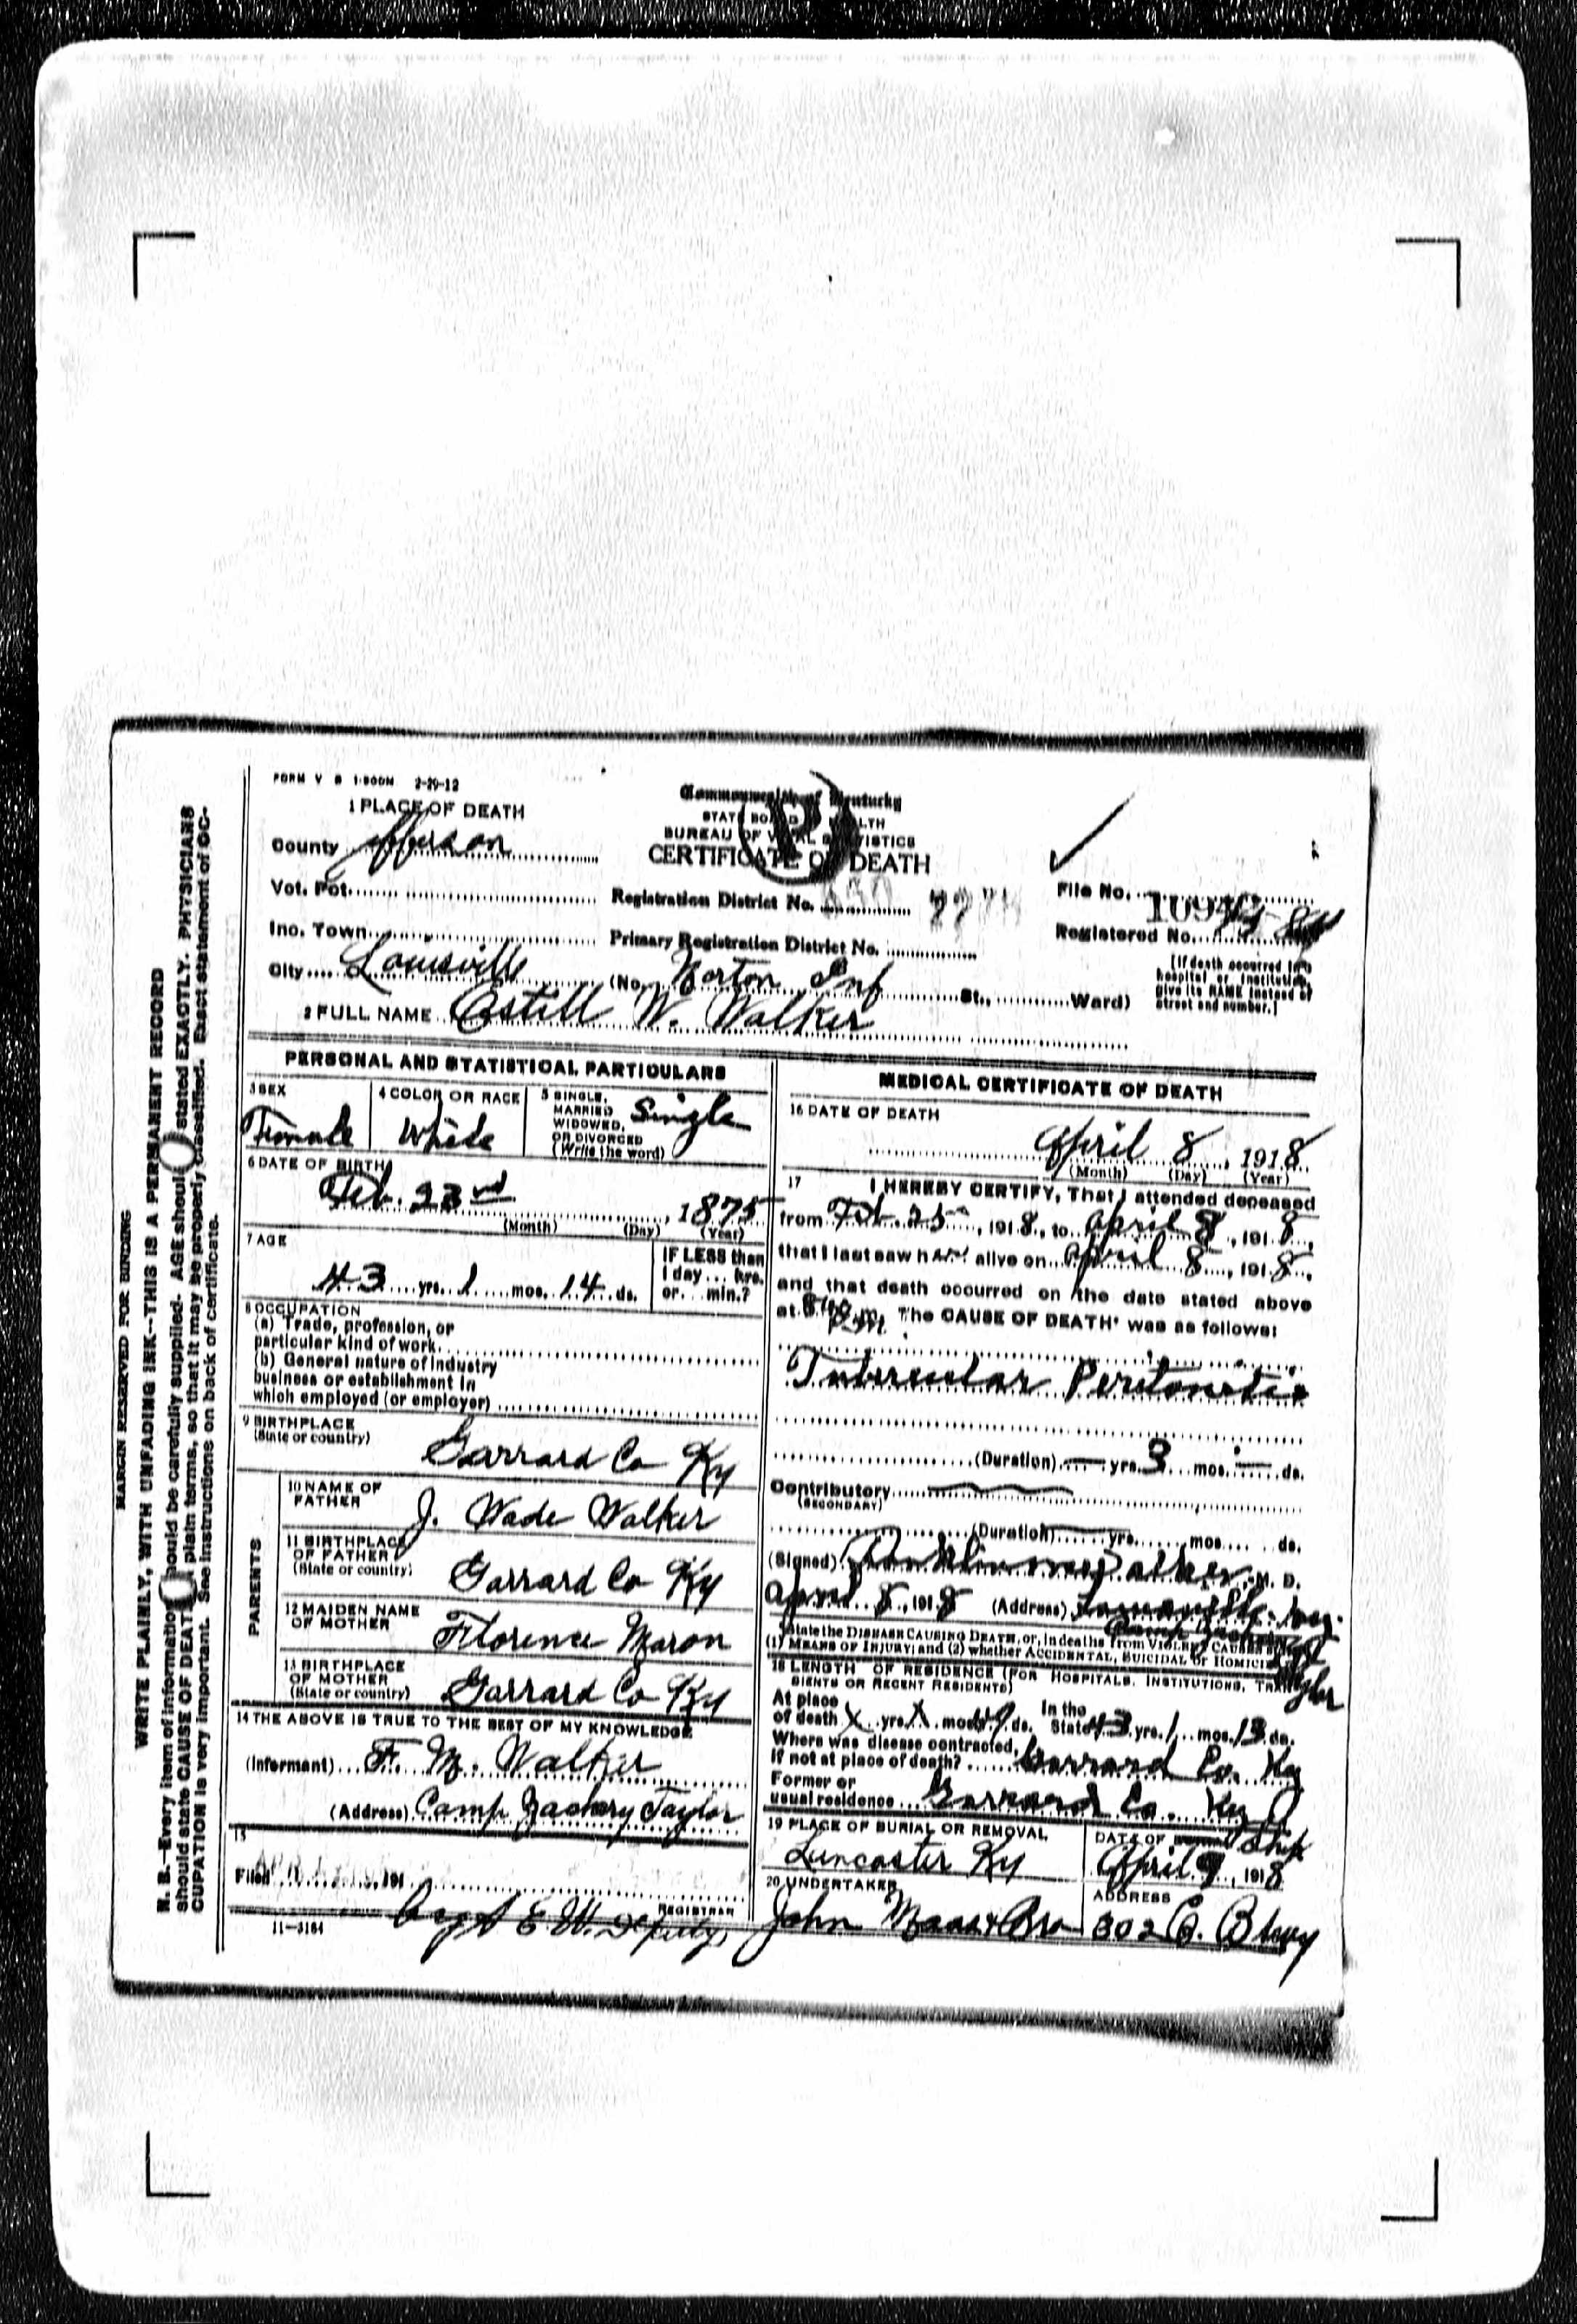 FORM V S 1-500M 2-29-12
1 PLACE OF DEATH
County Jefferson
Vot. Pct.
Inc. Town
City Louisville
Commonwealth of Kentucky
STATE BOARD HEALTH
BUREAU OF VITAL STATISTICS
CERTIFICATE OF DEATH
Registration District No.
Primary Registration District No.
(No. Norton Inf St., Ward)
File No.
Registered No.
[If death occurred in a
hospital or institution,
give its NAME instead of
street and number.]
2 FULL NAME Estill W. Walker
PERSONAL AND STATISTICAL PARTICULARS
3 SEX
Female
4 COLOR OR RACE
White
5 SINGLE,
MARRIED
WIDOWED,
OR DIVORCED
(Write the word)
Single
6 DATE OF BIRTH
Feb. 23rd, 1875
(Month) (Day) (Year)
7 AGE
43 yrs. 1 mos. 14 ds.
IF LESS than
1 day ... hrs.
or ... min.?
8 OCCUPATION
(a) Trade, profession, or
particular kind of work
(b) General nature of industry
business or establishment in
which employed (or employer)
9 BIRTHPLACE
(State or country)
Garrard Co Ky
PARENTS
10 NAME OF
FATHER
J. Wade Walker
11 BIRTHPLACE
OF FATHER
(State or country)
Garrard Co Ky
12 MAIDEN NAME
OF MOTHER
Florence Mason
13 BIRTHPLACE
OF MOTHER
(State or country)
Garrard Co Ky
14 THE ABOVE IS TRUE TO THE BEST OF MY KNOWLEDGE
(Informant) F. M. Walker
(Address) Camp Zachary Taylor
15
Filed 191
E. W. Deputy
REGISTRAR
11-3184
MEDICAL CERTIFICATE OF DEATH
16 DATE OF DEATH
April 8, 1918
(Month) (Day) (Year)
17 I HEREBY CERTIFY, That I attended deceased
from Feb. 25, 1918, to April 8, 1918,
that I last saw her alive on April 8, 1918,
and that death occurred on the date stated above
at P.m. The CAUSE OF DEATH* was as follows:
Tubercular Peritonitis
(Duration) — yrs. 3 mos. — ds.
Contributory
(SECONDARY)
(Duration) yrs. mos. ds.
(Signed) M. D.
April 8, 1918 (Address)
Camp Zachary Taylor
*State the DISEASE CAUSING DEATH, or, in deaths from VIOLENT CAUSES
(1) MEANS OF INJURY; and (2) whether ACCIDENTAL, SUICIDAL or HOMICIDAL
18 LENGTH OF RESIDENCE (FOR HOSPITALS, INSTITUTIONS, TRANSIENTS OR RECENT RESIDENTS)
At place
of death X yrs. X mos. ds. In the
State 43 yrs. 1 mos. 13 ds.
Where was disease contracted,
if not at place of death? Garrard Co. Ky
Former or
usual residence Garrard Co. Ky
19 PLACE OF BURIAL OR REMOVAL
Lancaster Ky
DATE OF Ship
April 9, 1918
20 UNDERTAKER
John Maas & Bro
ADDRESS
302 E. Bdwy
MARGIN RESERVED FOR BINDING
WRITE PLAINLY, WITH UNFADING INK--THIS IS A PERMANENT RECORD
N. B.--Every item of information should be carefully supplied. AGE should stated EXACTLY. PHYSICIANS
should state CAUSE OF DEATH plain terms, so that it may be properly classified. Exact statement of OC-
CUPATION is very important. See instructions on back of certificate.